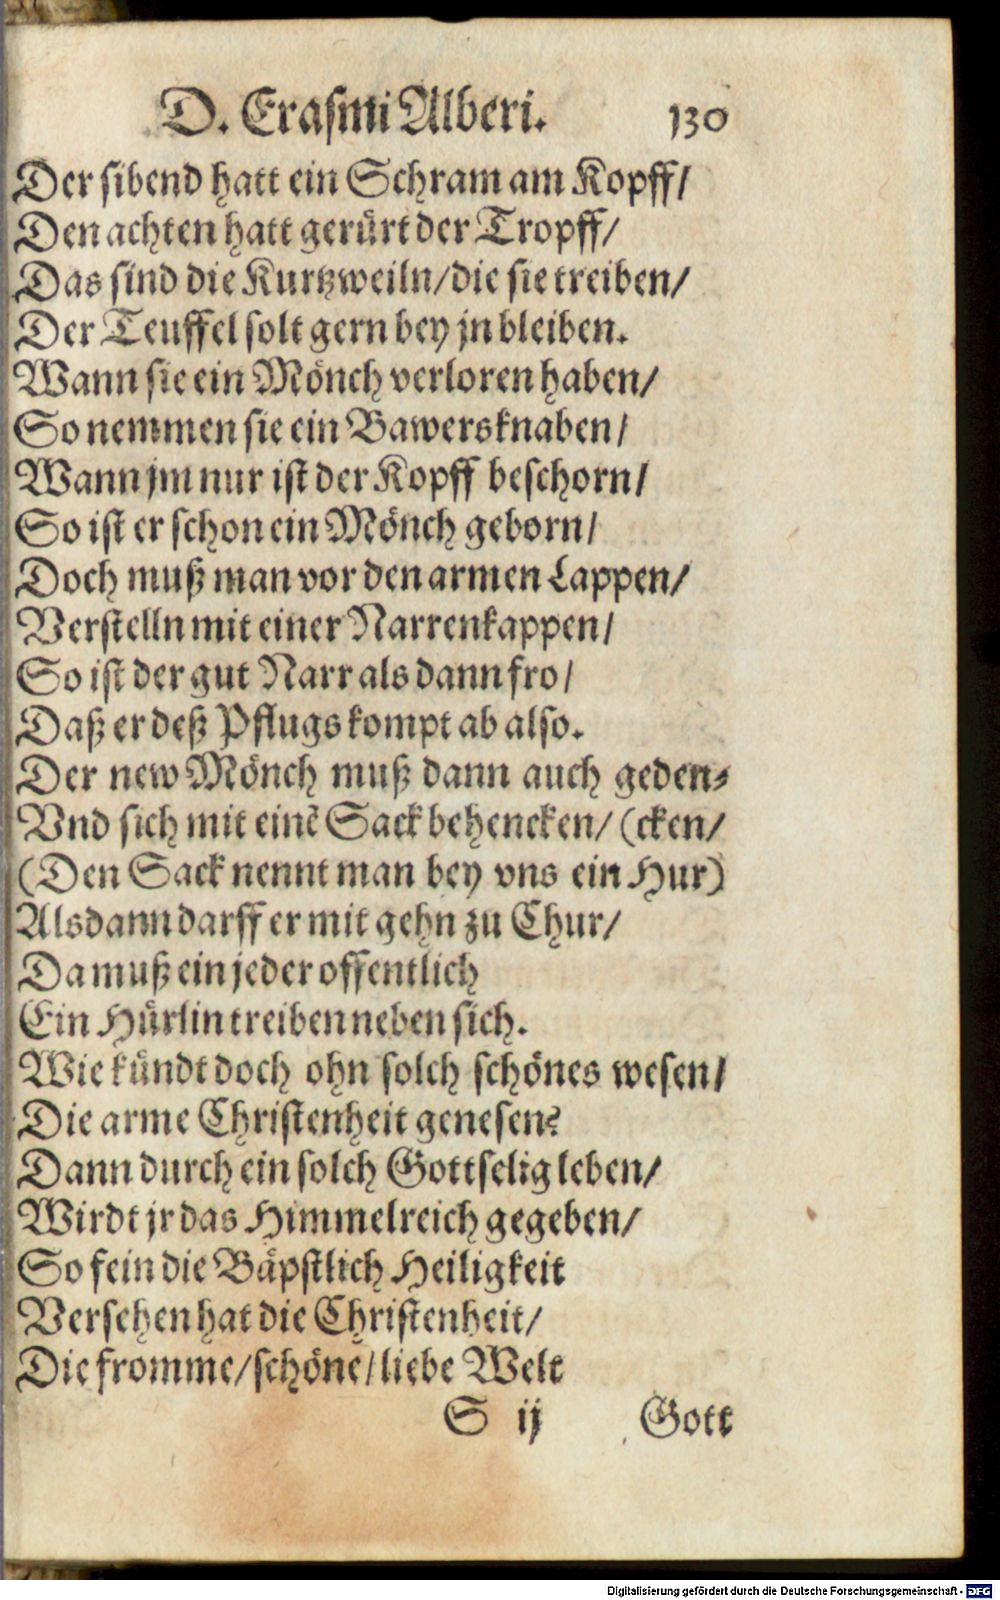 D. Erasmi Alberi. 130
Der sibend hatt ein Schram am Kopff/
Den achten hatt gerürt der Tropff/
Das sind die Kurtzweiln/die sie treiben/
Der Teuffel solt gern bey jn bleiben.
Wann sie ein Mönch verloren haben/
So nemmen sie ein Bawersknaben/
Wann jm nur ist der Kopff beschorn/
So ist er schon ein Mönch geborn/
Doch muß man vor den armen Lappen/
Verstelln mit einer Narrenkappen/
So ist der gut Narr als dann fro/
Daß er deß Pflugs kompt ab also.
Der new Mönch muß dann auch geden-
Vnd sich mit einẽ Sack behencken/ (cken/
(Den Sack nennt man bey vns ein Hur)
Alsdann darff er mit gehn zu Chur/
Da muß ein jeder offentlich
Ein Hürlin treiben neben sich.
Wie kündt doch ohn solch schönes wesen/
Die arme Christenheit genesen?
Dann durch ein solch Gottselig leben/
Wirdt jr das Himmelreich gegeben/
So fein die Bäpstlich Heiligkeit
Versehen hat die Christenheit/
Die fromme/schöne/liebe Welt
S ij Gott
Digitalisierung gefördert durch die Deutsche Forschungsgemeinschaft - DFG